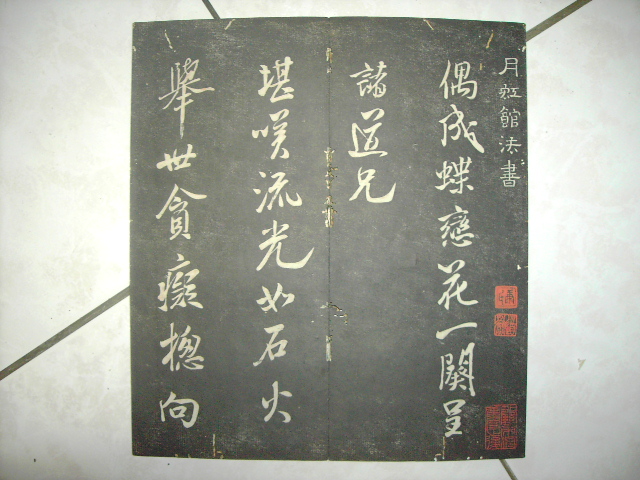 月虹館法書
偶成蝶戀花一闋呈
諸道兄
堪咲流光如石火
舉世貪癡摠向